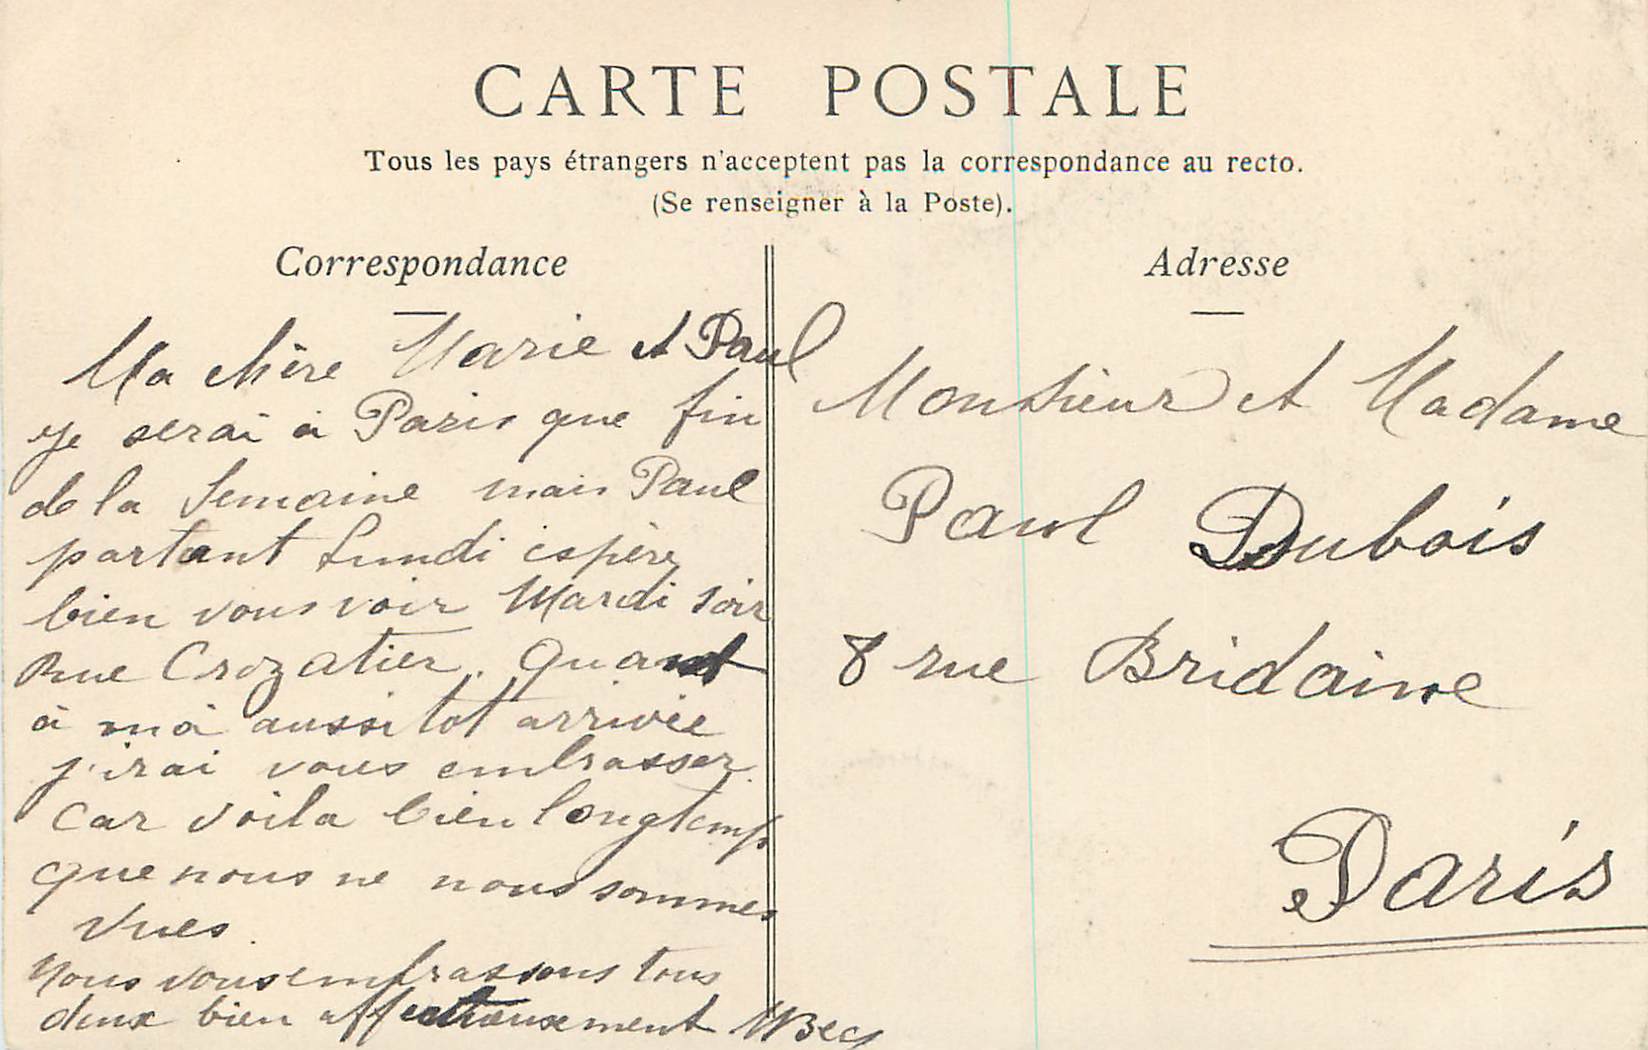 CARTE POSTALE
Tous les pays étrangers n'acceptent pas la correspondance au recto.
(Se renseigner à la Poste).
Correspondance
Ma chère Marie et Paul
je serai à Paris que fin
de la Semaine mais Paul
partant Lundi espère
bien vous voir Mardi soir
Rue Crozatier. Quant
à moi aussitot arrivée
j'irai vous embrasser
car voila bien longtemps
que nous ne nous sommes
vues.
Nous vous embrassons tous
deux bien affectueusement
Adresse
Monsieur et Madame
Paul Dubois
8 rue Bridaine
Paris